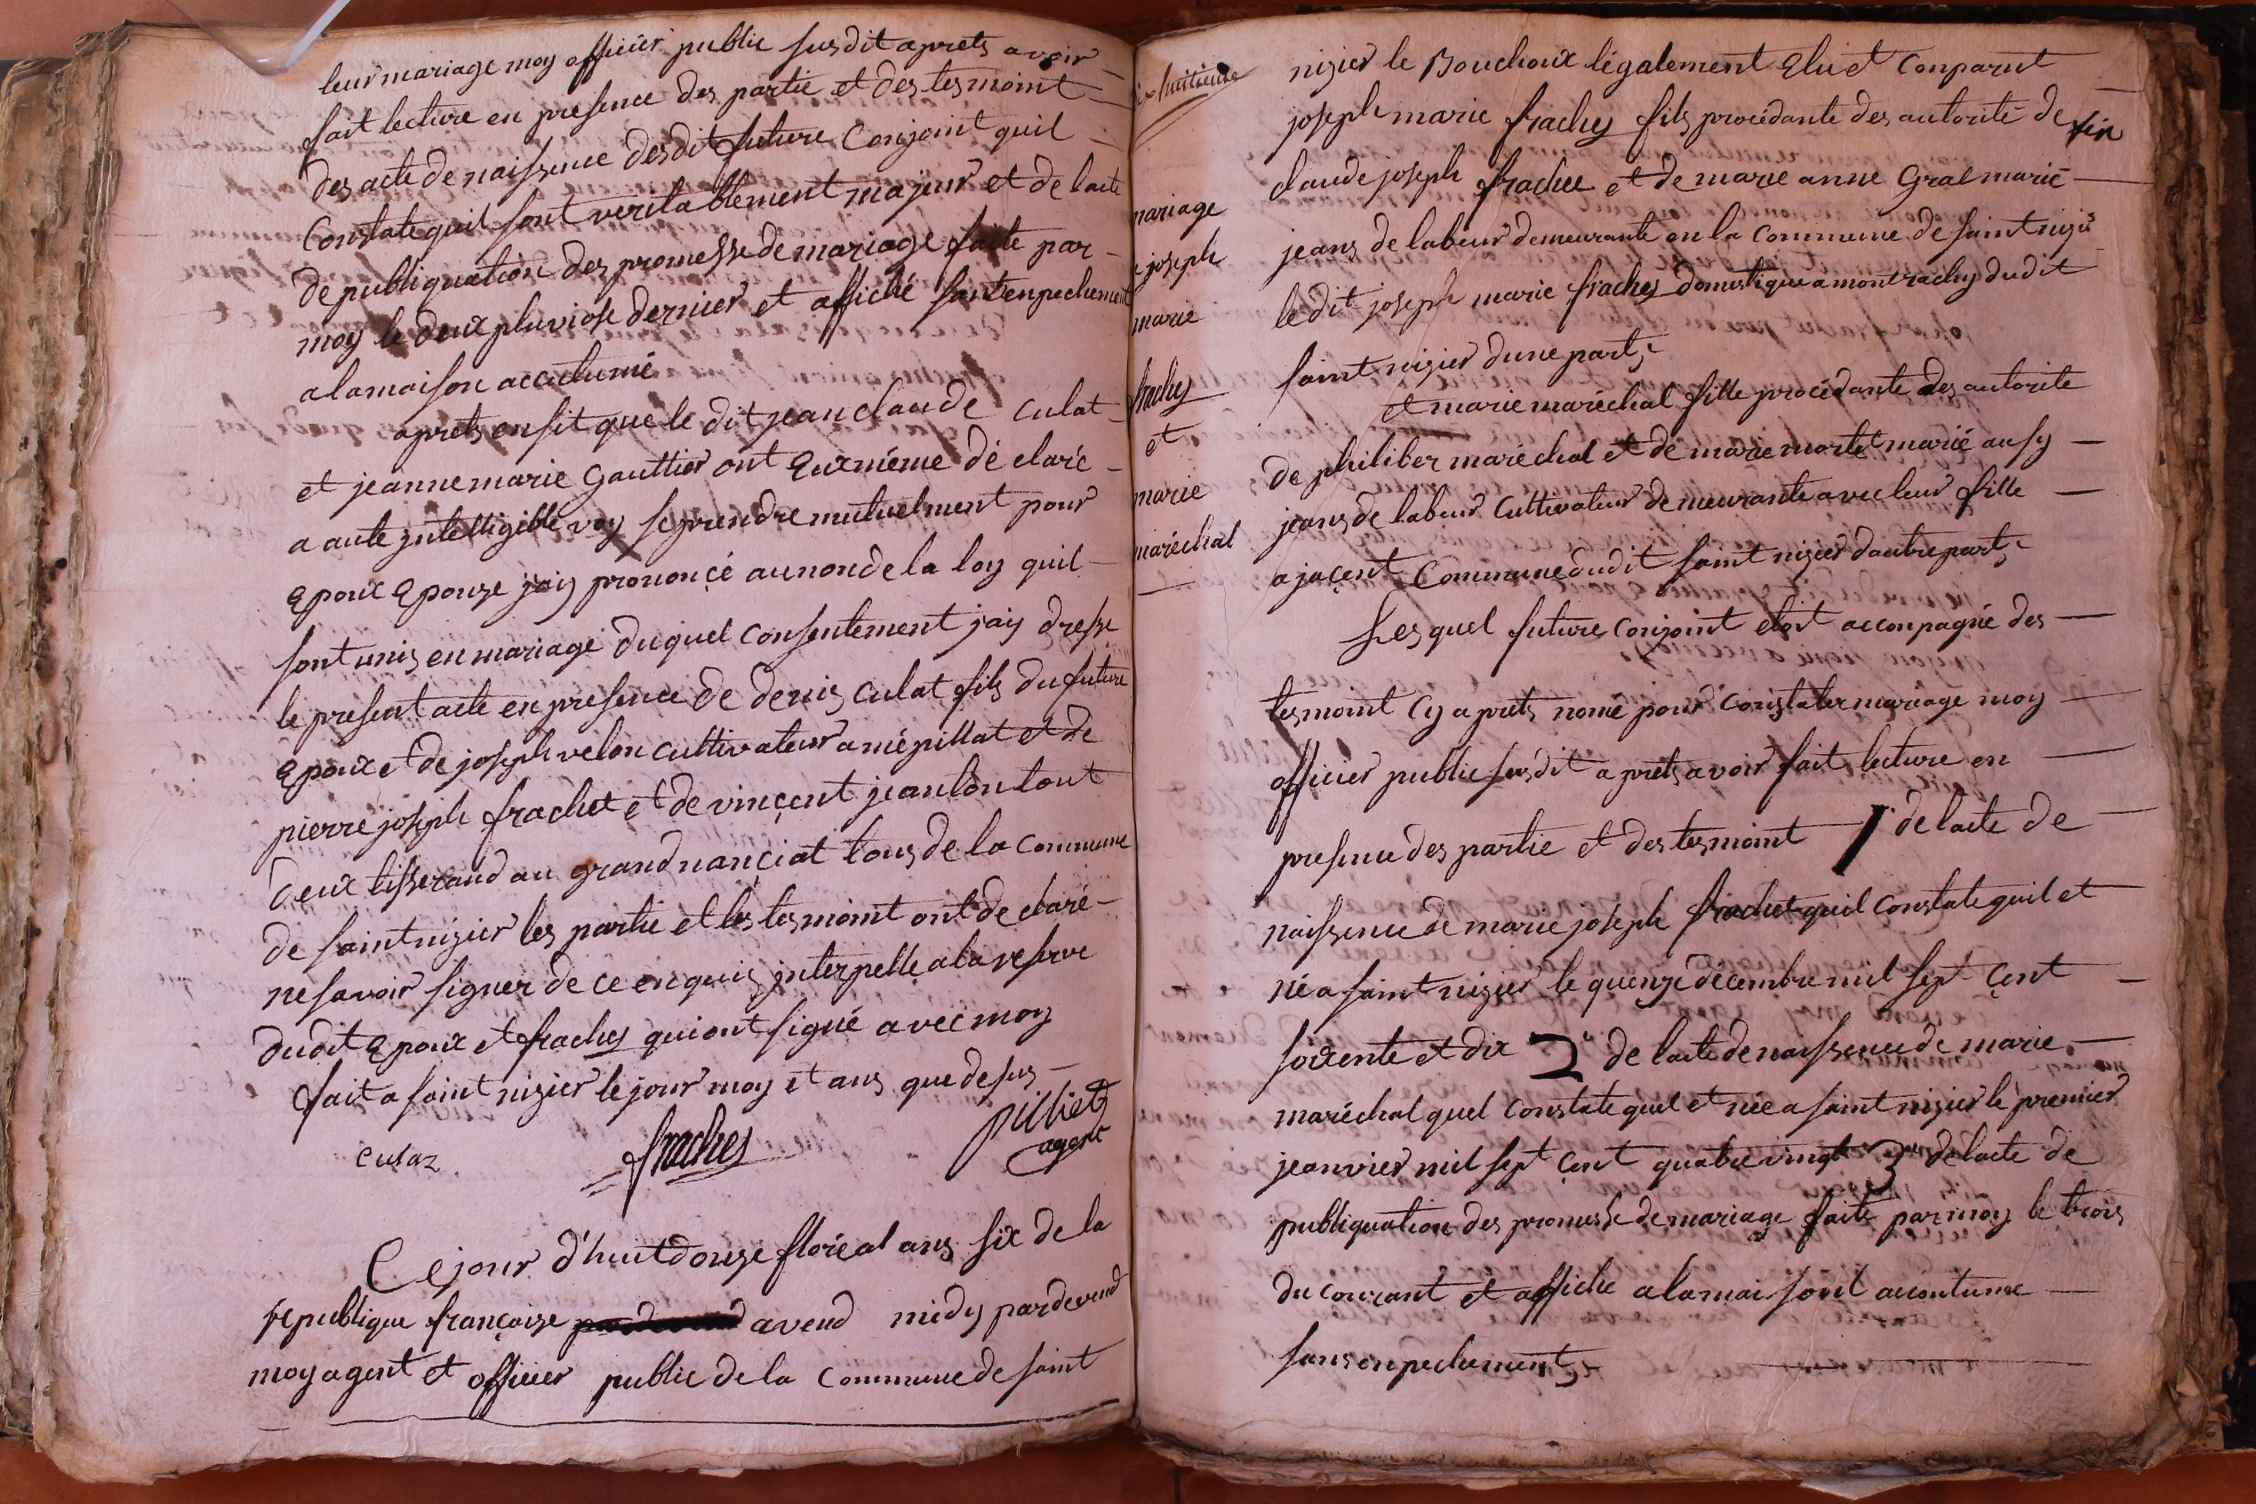 leur mariage moy officier public susdit aprets avoir
fait lecture en presence des partie et des tesmoint
des acte de naissence desdit future Conjoint quil
Constate quil sont veritablement majeur et de lacte
de publiquation des promesse de mariage faite par
moy le deux pluviose dernier et affiché sant enpechement
a la maison accutumé
aprets ensit que le dit jean claude culat
et jeanne marie Gauttier ont Euxméme dé claré
a aute jntelligible voy se prendre mutuelment pour
Epoux Epouze jay prononcé au non de la loy quil
sont unis en mariage duquel Consentement jay dresse
le present acte en presence de denis culat fils du future
Epoux et de joseph velon cultivateur a mépillat et de
pierre joseph frachet et de vinçent jeanlon tout
deux tisserand au grand nanciat tous de la Commune
de saint nizier les partie et les tesmoint ont declaré
ne savoir signer de ce enquis jnterpelle a la reserve
dudit Epoux et frachey qui ont signé avec moy
fait a saint nizier le jour moy et ans que desus
culaz frachey pilliet
agent
Ce jour d'huit douze floréal ans six de la
republique françoise avend midy pardevend
moy agent et officier public de la Commune de saint
huitieme
mariage
joseph
marie
frachey
et
marie
maréchal
nizier le Bouchoux légalement Elu et Conparut
joseph marie frachey fils procédante des autorité de
claude joseph frachee et de marie anne Gral marié
jeans de labeur demeurante en la Commune de saint nizié
le dit joseph marie frachey domestique a montrachy dudit
saint nizier dune part,
et marie maréchal fille procédante des autorite
de philiber maréchal et de marie morlet marié ausy
jeans de labeur Cultivateur demeurante avec leur fille
a jaçent Commune dudit saint nizier dautre part,
Lesquel future Conjoint etoit acconpagné des
tesmoint Cy aprets nomé pour Constater mariage moy
officier public susdit aprets avoir fait lecture en
presence des partie et des tesmoint 1º de lacte de
naissence de marie joseph frachet quil Constate quil et
né a saint nizier le quenze décembre mil sept çent
soixente et dix 2º de lacte de naissence de marie
maréchal quel Constate quel et née a saint nizier le premier
jeanvier mil sept çent quatre vingt 3º de lacte de
publiquation des promesse de mariage faite par moy le trois
du courant et affiche a la mai sont accoutume
sans enpechement,